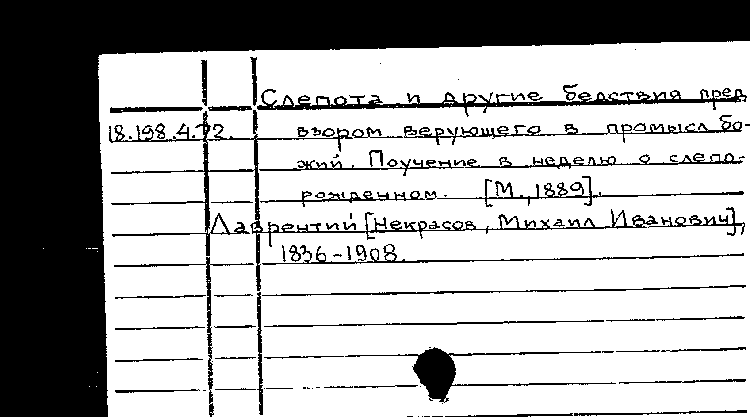 Слепота и другие бедствия пред
18.198.4.72. взором верующего в промысл бо-
жий. Поучение в неделю о слепо-
рожденном. [М., 1889].
Лаврентий [Некрасов, Михаил Иванович],
1836-1908.